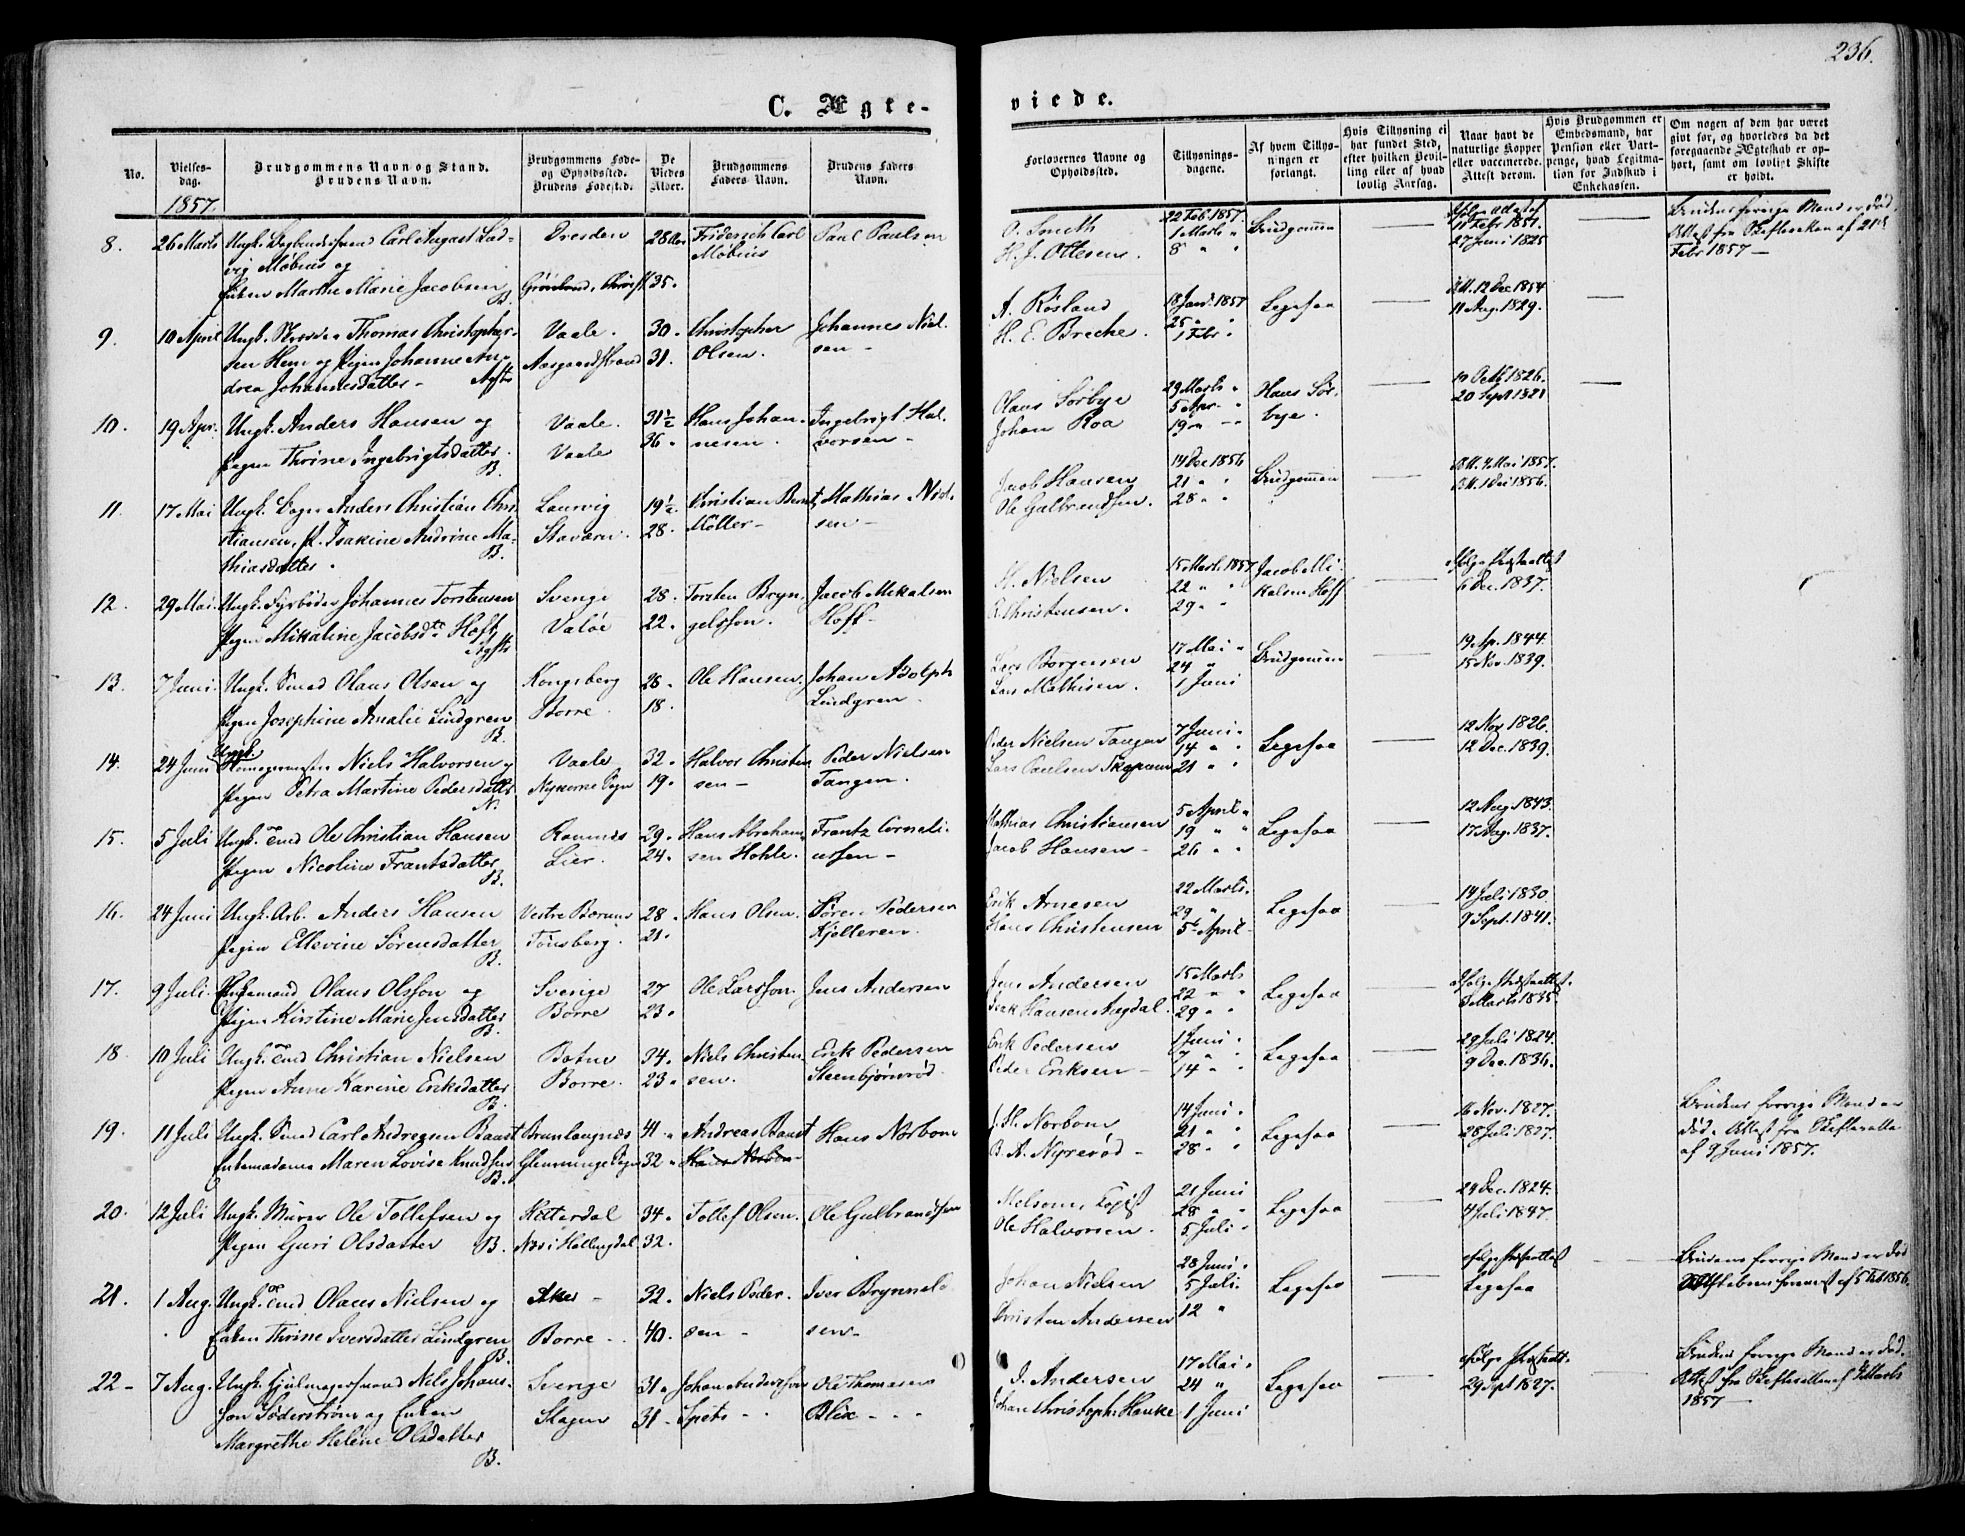 236.
C. Ægte-
viede.
No.
Vielses-
dag.
Brudgommens Navn og Stand.
Brudens Navn.
Brudgommens Føde-
og Opholdssted.
Brudens Fødested.
De
Viedes
Alder.
Brudgommens
Faders Navn.
Brudens Faders
Navn.
1857.
8. 26 Marts Ungk. Carl August Lud- Dresden 28 Friderich Carl Paul Paulsen
vig Møbius og Møbius
Enken Marthe Marie Jacobsen 35.
B.
9. 10 April Ungk. Thomas Christopher- Vaale. 30. Christopher Johannes Niel-
sen Hem og Pigen Johanne An- Aasgaardstrand 31. Olsen. sen -
drea Johannesdatter -
10. 19 Apr. Ungk. Anders Hansen og Vaale. 31½ Hans Johan- Ingebrigt Hal-
Pigen Thrine Ingebrigtsdatter. Vaale 36. nesen. vorsen -
B.
11. 17 Mai Ungk. Anders Christian Chri- Laurvig 19½ Christian Bernt Mathias Niel-
stiansen, P. Isakine Andrine Ma- Staværn. 28. Møller - sen -
thiasdatter. B.
12. 29 Mai Ungk. Fyrbøder Johannes Torstensen Sverige 28. Torsten Bryn- Jacob Mikalsen
Pigen Mikaline Jacobsdtr Hoff, Valøe 22. gelsson. Hoff -
13. 7 Juni. Ungk. Smed Olaus Olsen og Kongsberg 28. Ole Hansen. Johan Adolph
Pigen Josephine Amalie Lindgren Borre. 18. Lindgren.
B.
14. 24 Juni Ungk. Niels Halvorsen og Vaale 32. Halvor Christen- Peder Nielsen
Pigen Petra Martine Pedersdatter Nykirke Sogn 19. sen - Tangen.
N.
15. 5 Juli Ungk. Tmd Ole Christian Hansen Ramnæs 29. Hans Abraham- Frantz Corneli-
Pigen Nicoline Frantsdatter Lier. 24. sen Hohle. ussen -
B.
16. 24 Juni Ungk. Arb. Anders Hansen Vestre Bærum 28. Hans Olsen. Søren Pedersen
Pigen Ellevine Sørensdatter Tønsberg. 21. Kjelleren.
B.
17. 9 Juli. Olaus Olsson og Sverige 27 Ole Larsson. Jens Andersen
Pigen Kirstine Marie Jensdatter Borre 23.
B.
18. 10 Juli Ungk. Tmd Christian Nielsen Botne 34. Niels Christen- Erik Pedersen
Pigen Anne Karine Eriksdatter Borre. 23. sen. Steenbjørnrød.
B.
19. 11 Juli Ungk. Smed Carl Andreasen Baust Brunlaugnæs 41. Andreas Baust Hans Norbom
Enkemadame Maren Lovise Knudsen Glemminge Sogn 32. Hans Norbom
B.
20. 12 Juli Ungk. Murer Ole Tollefsen og Hitterdal 34. Tollef Olsen. Ole Gulbrandsen
Pigen Guri Olsdatter B. Næs i Hallingdal 32.
21. 1 Aug. Ungk. Tmd. Olaus Nielsen og Aker - 32. Niels Peder- Iver Brynnels-
Enken Thrine Iversdatter Lindgren Borre - 40. sen - sen -
B.
22 - 7 Aug. Ungk. Hjulmagersvend Nils Johans- Sverige 31. Johan Andersson Ole Thomesen
son Söderström og Enken Slagen 31 - Spets - Blix -
Margrethe Helene Olsdatter
B.
Forlovernes Navne og
Opholdssted.
Tillysnings-
dagene.
Af hvem Tillys-
ningen er
forlangt.
Hvis Tillysning ei
har fundet Sted,
efter hvilken Bevil-
ling eller af hvad
lovlig Aarsag.
Naar havt de
naturlige Kopper
eller vaccinerede.
Attest derom.
Hvis Brudgommen er
Embedsmand, har
Pension eller Vart-
penge, hvad Legitima-
tion for Indskud i
Enkekassen.
Om nogen af dem har været
givt før, og hvorledes da det
foregaaende Ægteskab er op-
hørt, samt om lovligt Skifte
er holdt.
O. Smith 22 Feb. 1857. Brudgommen 11 Febr 1851. Brudens forrige Mand er død
H. J. Ottesen. 1 Marts 27 Juni 1825 Attest fra Skifteretten af 21de
8 " " Febr 1857 -
A. Røsland 18 Jan. 1857 Legesaa Att. 12 Dec 1854
H. E. Breche. 25 " 11 Aug. 1829.
1 Febr.
Olaus Sørbye 29 Marts " Hans Sør- 10 Octb 1826.
Johan Roa 5 Apr. " bye. 20 Sept 1821
19 " "
Jacob Hansen 14 Dec 1856 Brudgommen Att. 4 Mai 1857.
Ole Gulbrandsen. 21 " " Att. 1 Dec 1856.
28 " "
H. Nielsen 15 Marts 1857 Jacob Mi-
Christensen. 22 " " kalsen Hoff 6 Dec. 1837.
29 " "
Lars Borgersen 17 Mai " Brudgommen 19 Ap. 1844.
Lars Mathisen. 24 " 15 Nov. 1839.
1 Juni
Peder Nielsen Tangen 7 Juni " Legesaa 12 Nov 1826.
Lars Paulsen 14 " " 12 Dec. 1839.
21 " "
Mathias Christiansen 5 April " Legesaa 12 Aug. 1843.
Jacob Hansen - 19 " " 17 Aug. 1837.
26 " "
Erik Arnesen 22 Marts. Legesaa 14 Juli 1830.
Hans Christensen 29 " 9 Sept. 1841.
5 April -
Jens Andersen 15 Marts Legesaa
Isak Hansen Augdal. 22 " " 8 Marts 1835
29 " "
Erik Pedersen 1 Juni " Legesaa 29 Juli 1824.
Peder Eriksen - 7 " " 9 Dec. 1836.
14 " "
J. H. Norbom 14 Juni " Legesaa 16 Nov. 1827. Brudens forrige Mand er
B. A. Nyrerød - 21 " " 28 Juli 1827. død. Attest fra Skifteretten
28 " " af 9 Juni 1857.
Melsom, 21 Juni Legesaa 24 Dec. 1824.
Ole Halvorsen. 28 " " 4 Juli 1847.
5 Juli "
Johan Nielsen 28 Juni. Legesaa Brudens forrige Mand er død
Christen Andersen 5 Juli. Legesaa af 5 Feb 1856.
12 "
J. Andersen 17 Mai. Legesaa Brudens forrige Mand er død.
Johan Christoph. Hauke 24 " 29 Sept 1827. Attest fra Skifteretten af Marts
1 Juni 1857 -